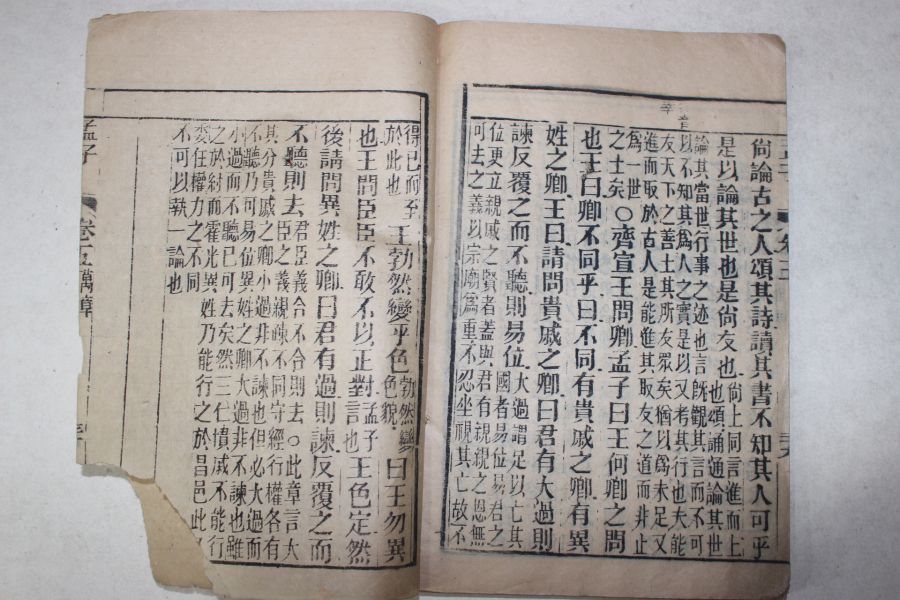 尙論古之人頌其詩讀其書不知其人可乎
是以論其世也是尙友也尙上同言進而上
也頌誦通論其世
論其當世行事之迹也言旣觀其言而不可
以不知其爲人之實是以又考其行也夫能
友天下之善士其所友衆矣猶以爲未足又
進而取於古人是能進其取友之道而非止
爲一世
之士矣○齊宣王問卿孟子曰王何卿之問
也王曰卿不同乎曰不同有貴戚之卿有異
姓之卿王曰請問貴戚之卿曰君有大過則
諫反覆之而不聽則易位大過謂足以亡其
國者易位易君之
位更立親戚之賢者蓋與君有親親之恩無
可去之義以宗廟爲重不忍坐視其亡故不
得已而至
於此也王勃然變乎色勃然變
色貌曰王勿異
也王問臣臣不敢不以正對孟子
言也王色定然
後請問異姓之卿曰君有過則諫反覆之而
不聽則去君臣義合不合則去○此章言大
臣之義親疎不同守經行權各有
其分貴戚之卿小過非不諫也但必大過而
不聽乃可易位異姓之卿大過非不諫也雖
小過而不聽已可去矣然三仁貴戚不能行
之於紂而霍光異姓乃能行之於昌邑此
委任權力之不同
不可以執一論也
孟子 卷五萬章